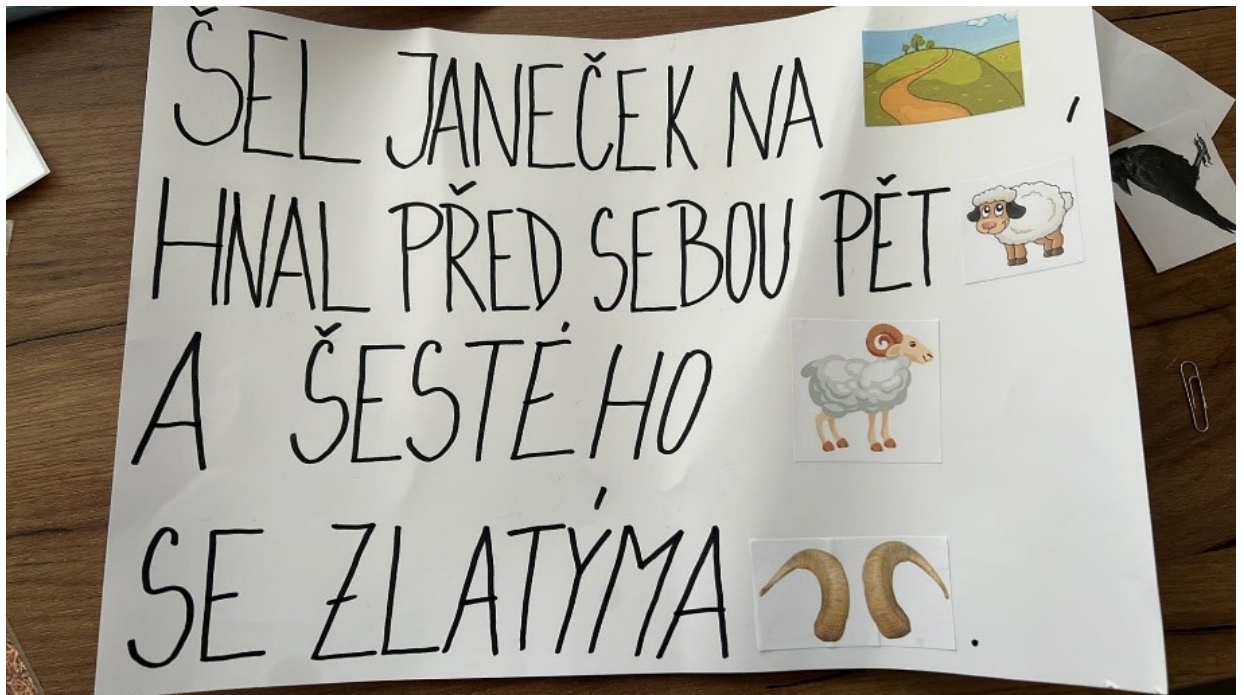 ŠEL JANEČEK NA ,
HNAL PŘED SEBOU PĚT
A ŠESTÉHO
SE ZLATÝMA .